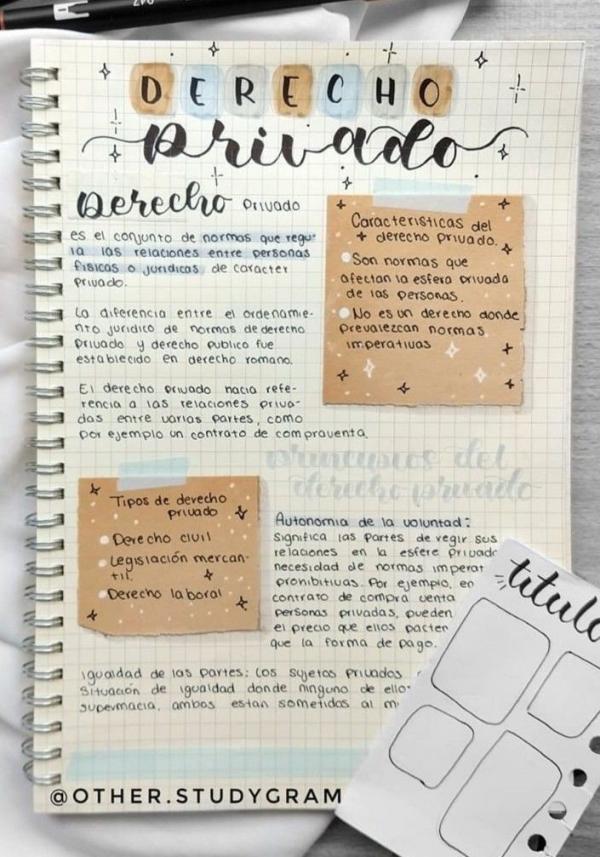 DERECHO
privado
Derecho Privado
es el conjunto de normas que regu-
la las relaciones entre personas
físicas o jurídicas de caracter
privado.
La diferencia entre el ordenamie-
nto jurídico de normas de derecho
privado y derecho publico fue
establecido en derecho romano.
El derecho privado hacia refe-
rencia a las relaciones priva-
das entre varias partes, como
por ejemplo un contrato de compraventa.
Caracteristicas del
derecho privado.
Son normas que
afectan la esfera privada
de las personas.
No es un derecho donde
prevalezcan normas
imperativas
Tipos de derecho
privado
Derecho civil
Legislación mercan-
til.
Derecho laboral
principios del
derecho privado
Autonomia de la voluntad:
Significa las partes de regir sus
relaciones en la esfere privada
necesidad de normas imperat
prohibitivas. Por ejemplo, en
contrato de compra venta
personas privadas, pueden
el precio que ellos pacten
que la forma de pago.
igualdad de las partes: Los sujetos privados
Situación de igualdad donde ninguno de ello
supermacia, ambos estan sometidos al m
titulo
@OTHER.STUDYGRAM